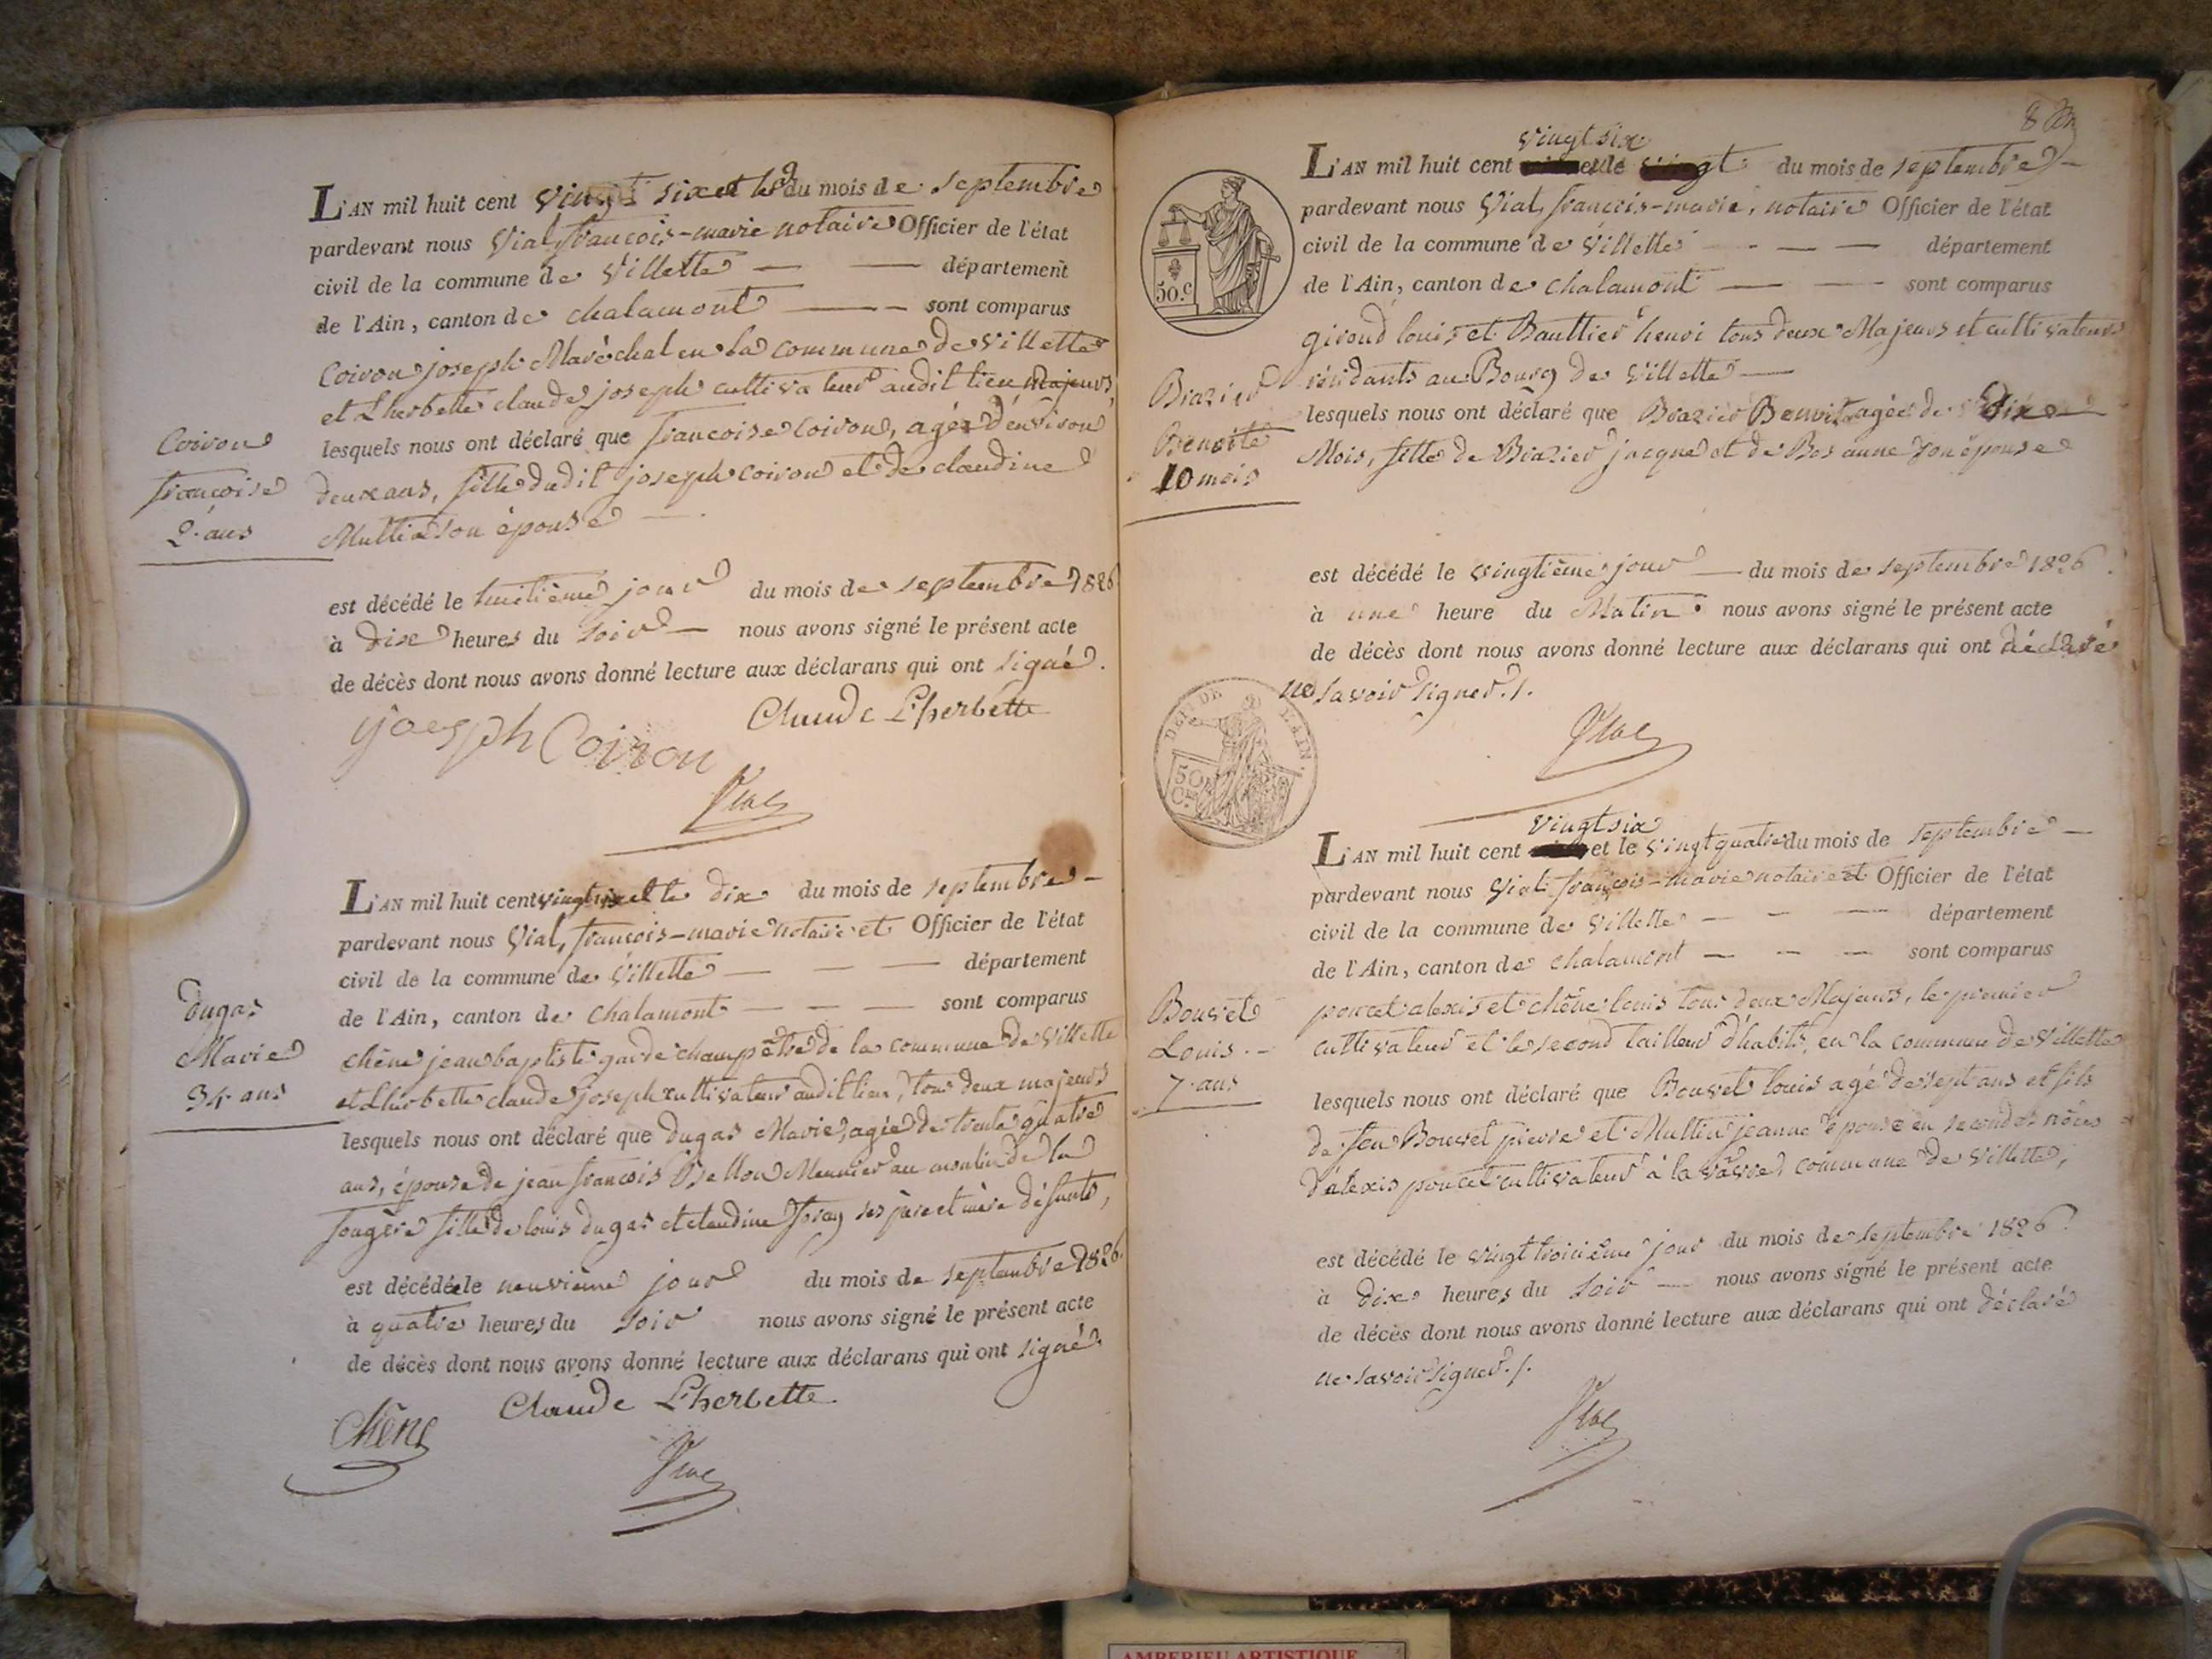 L'AN mil huit cent vingt six et le 9 du mois de septembre
pardevant nous Vial, françois-marie notaire Officier de l'état
civil de la commune de Villette — — département
de l'Ain, canton de chalamont — — sont comparus
Coiron joseph Maréchal en la commune de Villette
et Lherbette claude joseph cultivateur audit lieu majeurs,
Coiron
françoise
2 ans
lesquels nous ont déclaré que françoise Coiron, agée d'environ
deux ans, fille dudit joseph coiron et de claudine
Multin son épouse —
est décédé le huitième jour du mois de septembre 1826
à dix heures du soir — nous avons signé le présent acte
de décès dont nous avons donné lecture aux déclarans qui ont signé.
joesph Coiron Claude Lherbette
Vial
L'AN mil huit cent vingt six et le dix du mois de septembre —
pardevant nous Vial, françois-marie notaire et Officier de l'état
civil de la commune de Villette — — — département
de l'Ain, canton de Chalamont — — — sont comparus
dugas
Marie
34 ans
chêne jean baptiste garde champêtre de la commune de Villette
et Lherbette claude joseph cultivateur audit lieu, tous deux majeurs
lesquels nous ont déclaré que dugas Marie, agée de trente quatre
ans, épouse de jean françois Meunier au moulin de la
fougère fille de louis dugas et claudine ses père et mère défunts,
est décédée le neuvième jour du mois de septembre 1826.
à quatre heures du soir nous avons signé le présent acte
de décès dont nous avons donné lecture aux déclarans qui ont signé.
Claude Lherbette
Chêne
Vial
8
vingt six
L'AN mil huit cent et le vingt du mois de septembre —
pardevant nous Vial, francois-marie, notaire Officier de l'état
civil de la commune de Villette — — — département
de l'Ain, canton de chalamont — — sont comparus
50.c
giroud louis et Bauttier henri tous deux Majeurs et cultivateurs
résidants au Bourg de Villette —
Brazier
Benoite
10 mois
lesquels nous ont déclaré que Brazier Benoite agée de dix —
Mois, fille de Brazier jacque et de Bos anne son épouse
est décédé le vingtième jour — du mois de septembre 1826.
à une heure du Matin nous avons signé le présent acte
de décès dont nous avons donné lecture aux déclarans qui ont déclaré
ne savoir signer./.
DEPT. DE L'AIN.
50
CES
Vial
vingt six
L'AN mil huit cent et le vingt quatre du mois de septembre —
pardevant nous Vial françois-marie notaire et Officier de l'état
civil de la commune de Villette — — — département
de l'Ain, canton de chalamont — — — sont comparus
Bouvet
Louis. —
7 ans
poncet alexis et chêne louis tous deux Majeurs, le premier
cultivateur et le second tailleur d'habits, en la commune de Villette
lesquels nous ont déclaré que Bouvet louis agé de sept ans et fils
de feu Bouvet pierre et Multin jeanne épouse en secondes noces
d'alexis poncet cultivateur à la vavre commune de Villette,
est décédé le vingt troisième jour du mois de septembre 1826.
à dix heures du soir — nous avons signé le présent acte
de décès dont nous avons donné lecture aux déclarans qui ont déclaré
ne savoir signer./.
Vial
AMBERIEU ARTISTIQUE